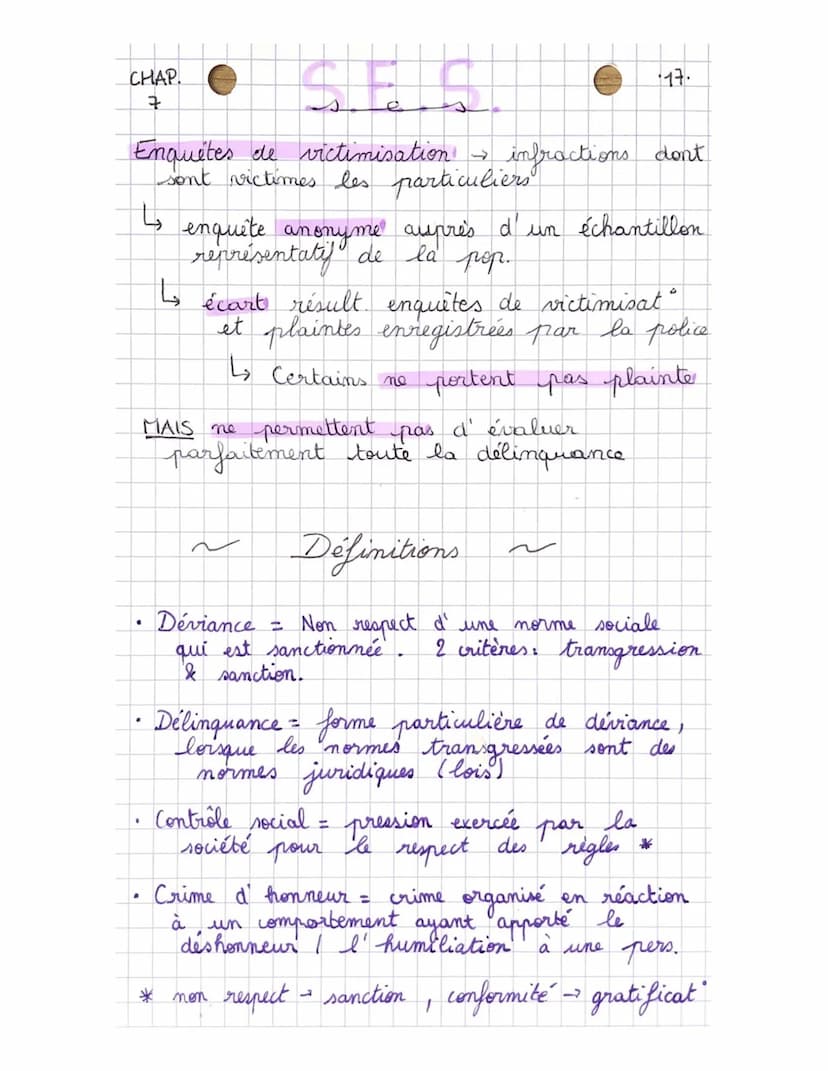 CHAP.
7
S.E.S.
s. e. s.
·17·
Enquêtes de victimisation → infractions dont
sont victimes les particuliers
↳ enquête anonyme auprès d'un échantillon
représentatif de la pop.
↳ écart résult. enquêtes de victimisat°
et plaintes enregistrées par la police
↳ Certains ne portent pas plainte
MAIS ne permettent pas d'évaluer
parfaitement toute la délinquance
~ Définitions ~
• Déviance = Non respect d'une norme sociale
qui est sanctionnée. 2 critères: transgression
& sanction.
• Délinquance = forme particulière de déviance,
lorsque les normes transgressées sont des
normes juridiques (lois)
• Contrôle social = pression exercée par la
société pour le respect des règles *
• Crime d'honneur = crime organisé en réaction
à un comportement ayant apporté le
déshonneur / l'humiliation à une pers.
* non respect → sanction, conformité → gratificat°